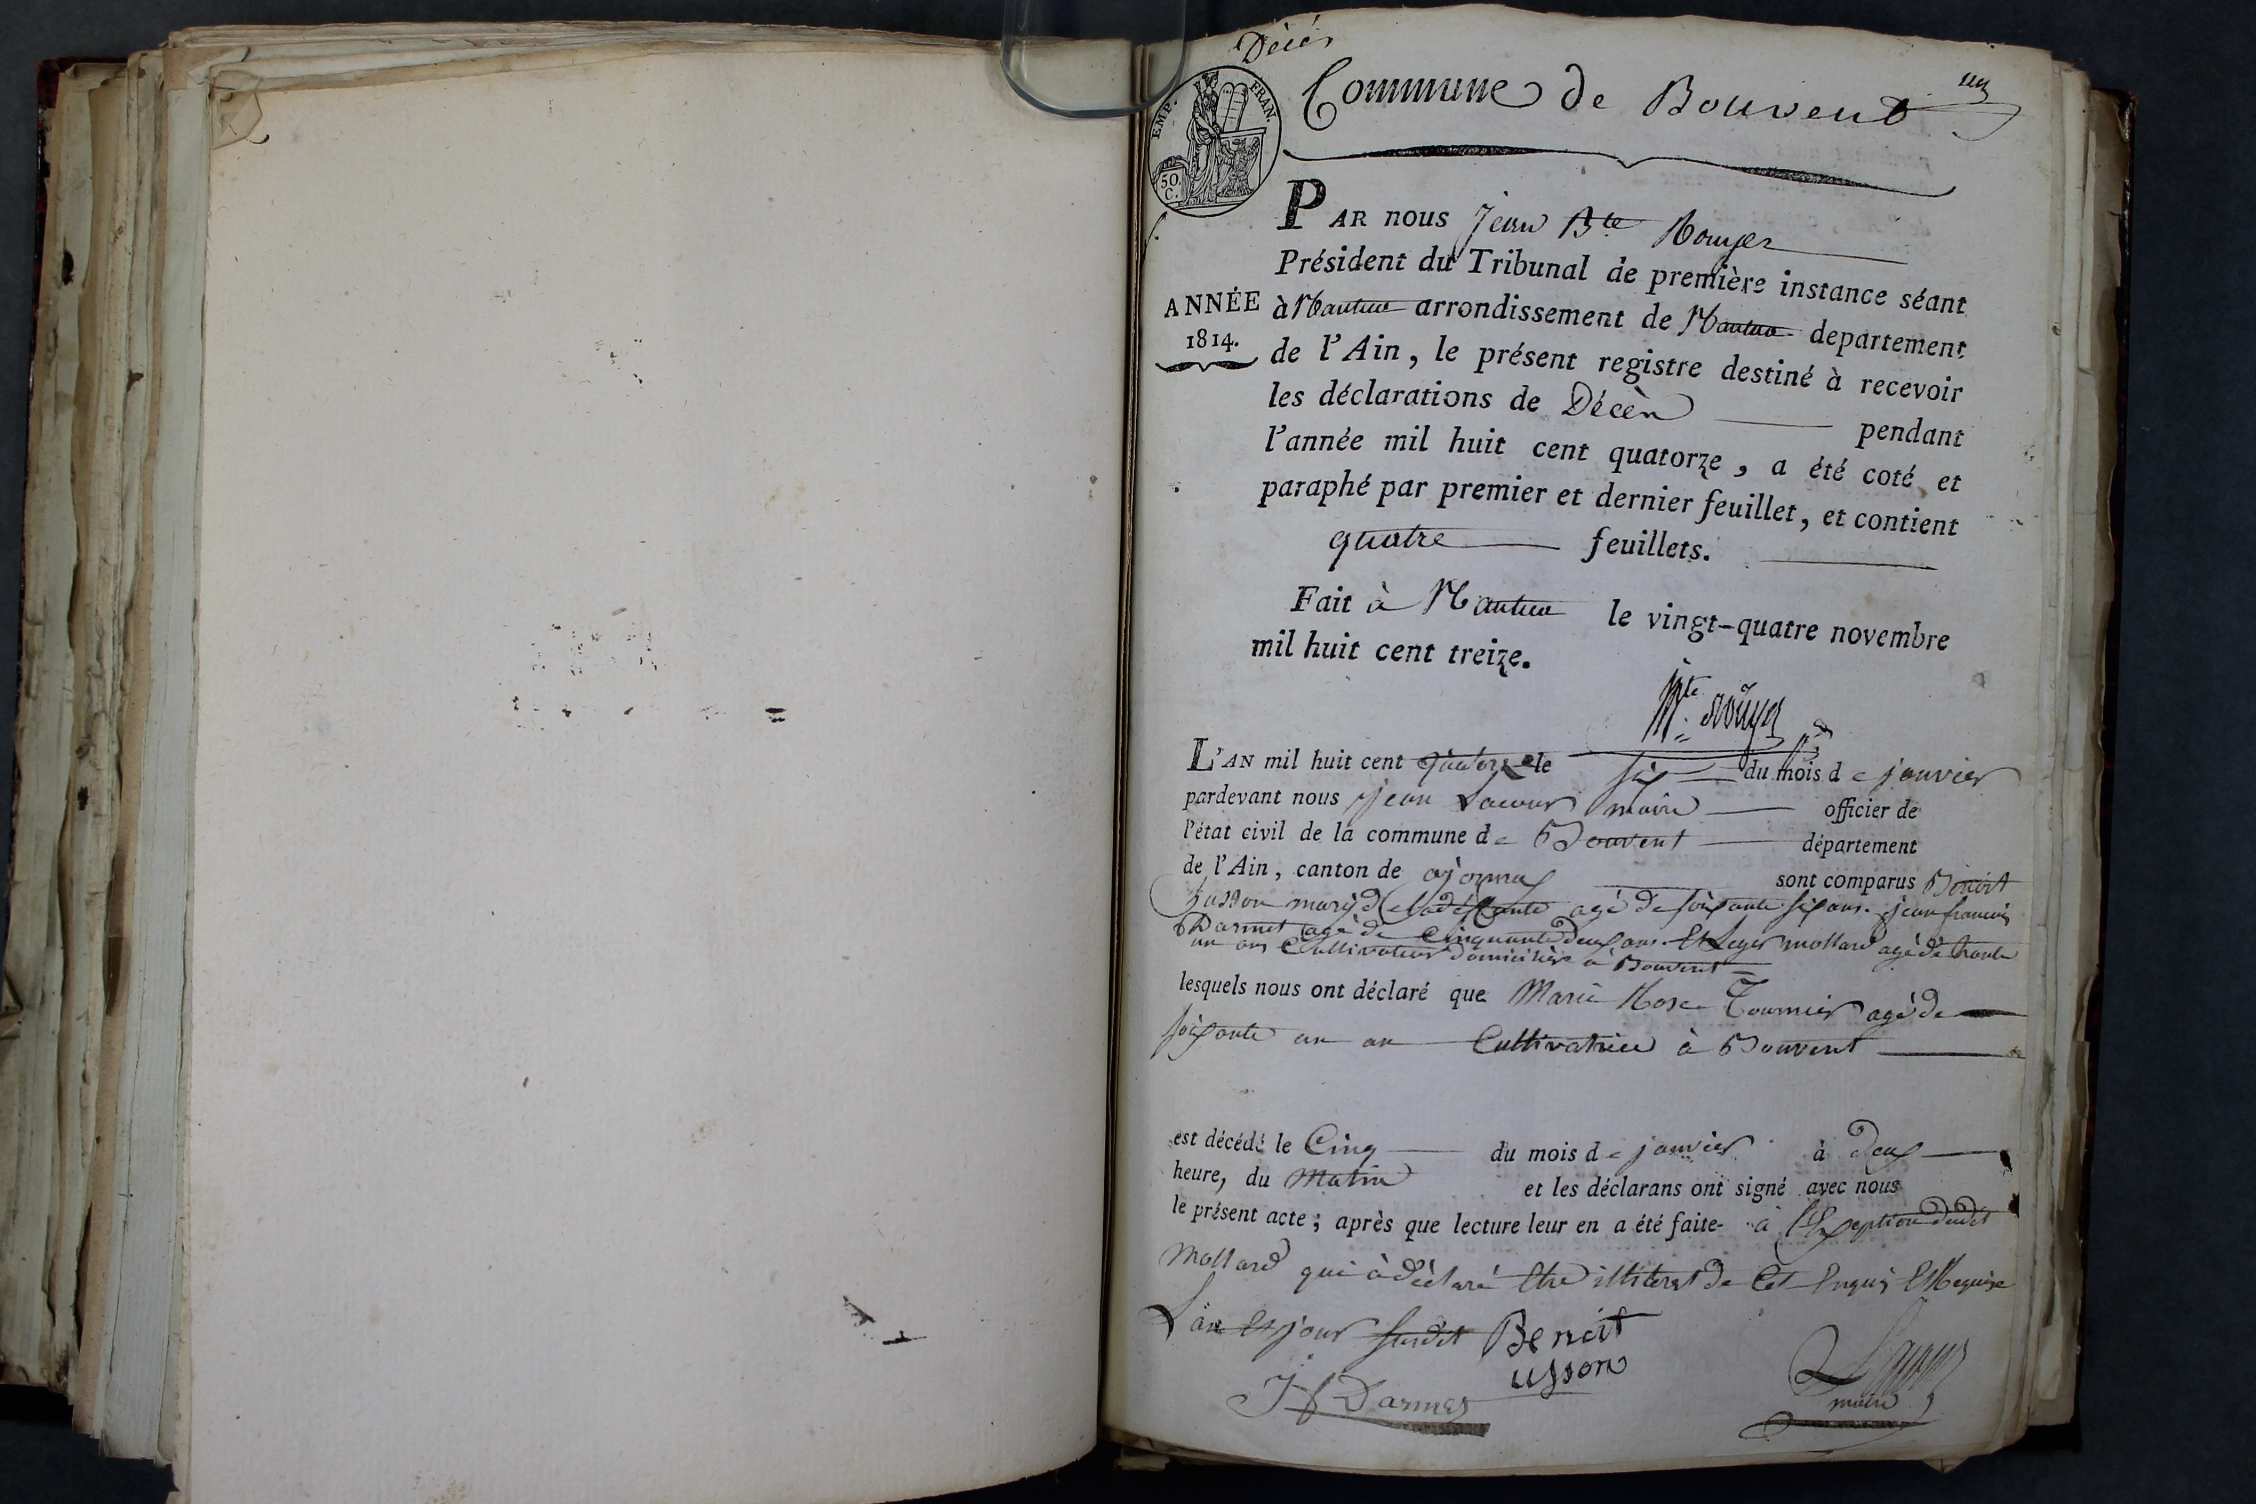 Décès
Commune de Bouvent
un
EMP. FRAN.
50.
C.
PAR nous Jean Bte Rouyer
Président du Tribunal de première instance séant
ANNÉE
1814.
à Nantua arrondissement de Nantua departement
de l'Ain, le présent registre destiné à recevoir
les déclarations de Décès pendant
l'année mil huit cent quatorze, a été coté et
paraphé par premier et dernier feuillet, et contient
quatre feuillets.
Fait à Nantua le vingt-quatre novembre
mil huit cent treize.
Bte Rouyer
L'AN mil huit cent quatorze le six du mois de janvier
pardevant nous jean Lacour maire officier de
l'état civil de la commune de Bouvent département
de l'Ain, canton de oÿonnax sont comparus Benoit
husson marÿ de la défunte agé de soixante six ans. jean francois
Darmet agé de Cinquante deux ans. Et Leger mollard agé de trante
un ans Cultivateurs domiciliés à Bouvent
lesquels nous ont déclaré que Marie Rose Tournier agé de
soixante un an Cultivatrice à Bouvent
est décédé le Cinq du mois de janvier à deux
heure, du Matin et les déclarans ont signé avec nous
le présent acte; après que lecture leur en a été faite à l'Exseption dudit
Mollard qui à déclaré Etre illiteret de Cet Enquis Et Requise
L'an Et jour susdit Benoit
usson
J f Darmet
Lacour
maire